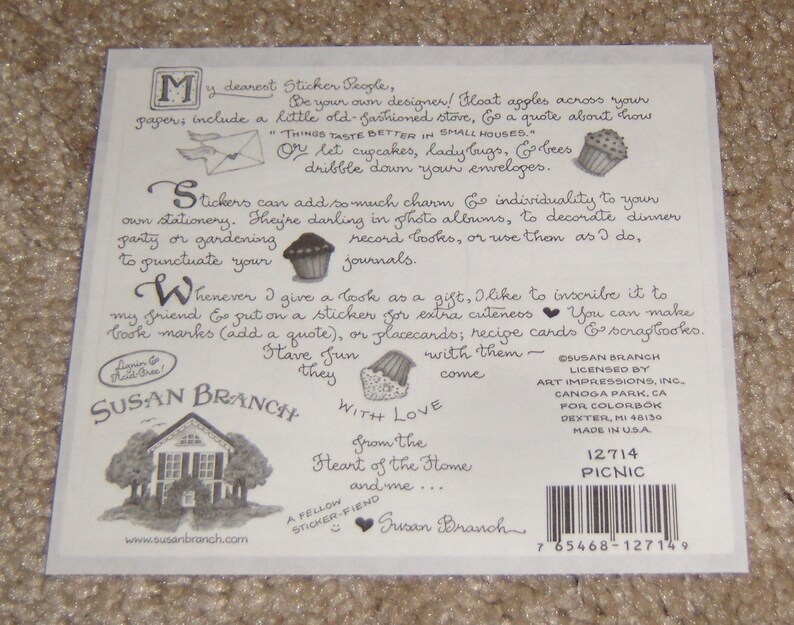 My dearest Sticker People,
Be your own designer! Float apples across your
paper; include a little old-fashioned stove, & a quote about how
"THINGS TASTE BETTER IN SMALL HOUSES."
Or let cupcakes, ladybugs, & bees
dribble down your envelopes.
Stickers can add so much charm & individuality to your
own stationery. They're darling in photo albums, to decorate dinner
party or gardening record books, or use them as I do,
to punctuate your journals.
Whenever I give a book as a gift, I like to inscribe it to
my friend & put on a sticker for extra cuteness ♥ You can make
book marks (add a quote), or placecards; recipe cards & scrapbooks.
Have fun with them ~
they come
WITH LOVE
from the
Heart of the Home
and me . . .
A FELLOW
STICKER-FIEND
♥ Susan Branch
Lignin &
Acid-Free!
SUSAN BRANCH
www.susanbranch.com
©SUSAN BRANCH
LICENSED BY
ART IMPRESSIONS, INC.,
CANOGA PARK, CA
FOR COLORBÖK
DEXTER, MI 48130
MADE IN U.S.A.
12714
PICNIC
7 65468-12714 9